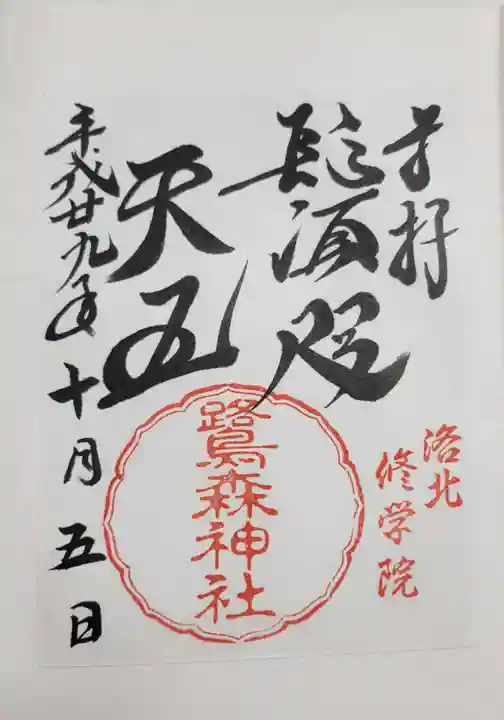 奉拝
洛北
修学院
鬚咒
天王
鷺森神社
平成廿九年十月五日